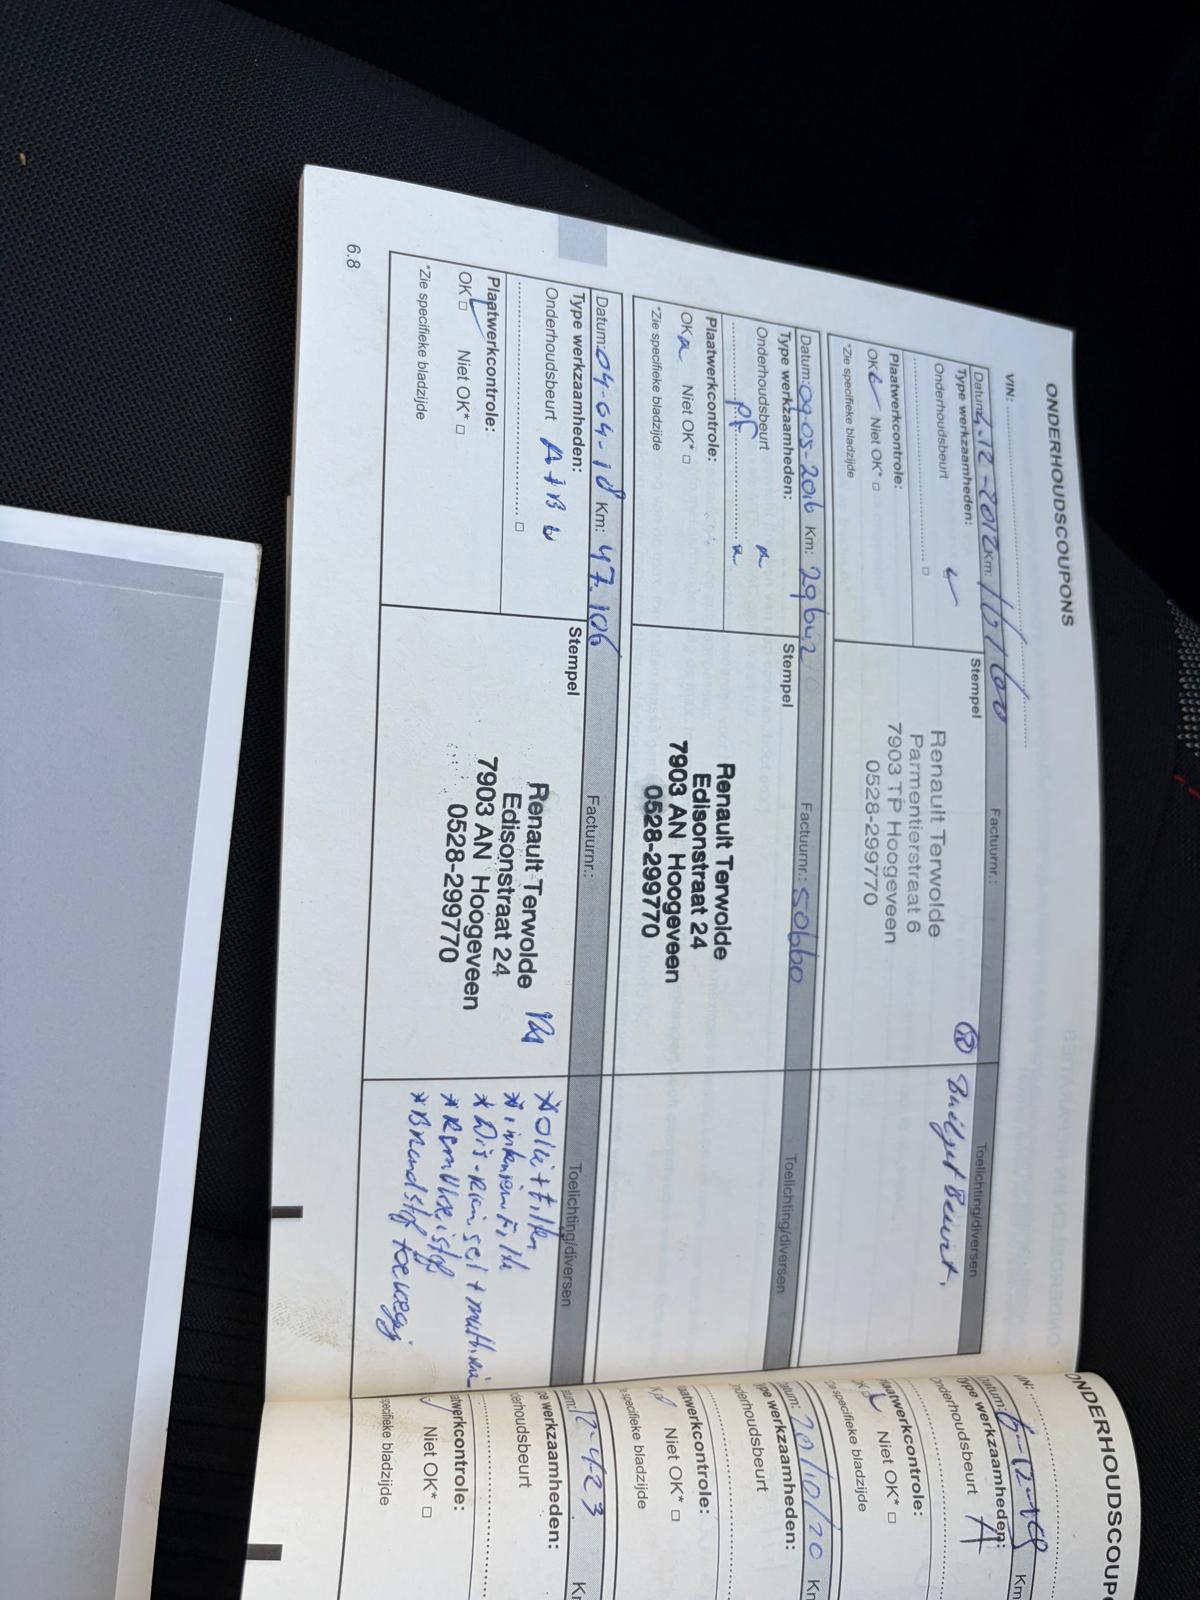 ONDERHOUDSCOUPONS
VIN:
Datum: 4-12-2012 Km:
Factuurnr.:
Toelichting/diversen
Type werkzaamheden:
Onderhoudsbeurt
Plaatwerkcontrole:
OK Niet OK* □
*Zie specifieke bladzijde
Stempel
Renault Terwolde
Parmentierstraat 6
7903 TP Hoogeveen
0528-299770
Budget Beurt,
Datum: 09-05-2016 Km: 29642
Factuurnr.: 50660
Toelichting/diversen
Type werkzaamheden:
Onderhoudsbeurt
Plaatwerkcontrole:
OK Niet OK* □
*Zie specifieke bladzijde
Stempel
Renault Terwolde
Edisonstraat 24
7903 AN Hoogeveen
0528-299770
Datum: 04-04-18 Km: 47.106
Factuurnr.:
Toelichting/diversen
Type werkzaamheden:
Onderhoudsbeurt A+B
Plaatwerkcontrole:
OK □ Niet OK* □
*Zie specifieke bladzijde
Stempel
Renault Terwolde
Edisonstraat 24
7903 AN Hoogeveen
0528-299770
*Olie + filter
*interieurfilter
*Remvloeistof
*Brandstof toevoeg
6.8
ONDERHOUDSCOUP
IN:
atum: 6-12-19 Km
ype werkzaamheden:
nderhoudsbeurt A
laatwerkcontrole:
Niet OK* □
e specifieke bladzijde
atum: 20/10/20 Km
ype werkzaamheden:
nderhoudsbeurt
aatwerkcontrole:
Niet OK* □
e specifieke bladzijde
tum: 12-4-23 Km
pe werkzaamheden:
derhoudsbeurt
atwerkcontrole:
Niet OK* □
specifieke bladzijde